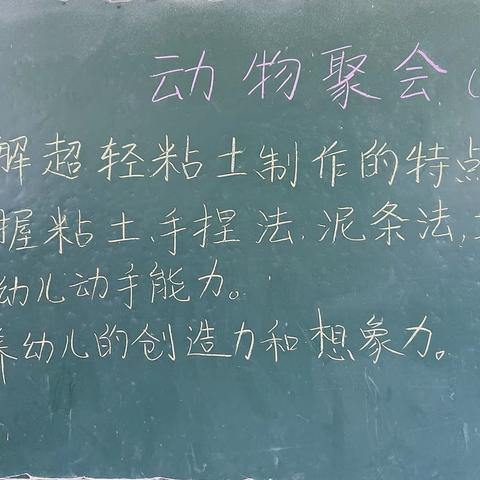 动物聚会(
解超轻粘土制作的特点
握粘土、手捏法、泥条法,
幼儿动手能力。
养幼儿的创造力和想象力。